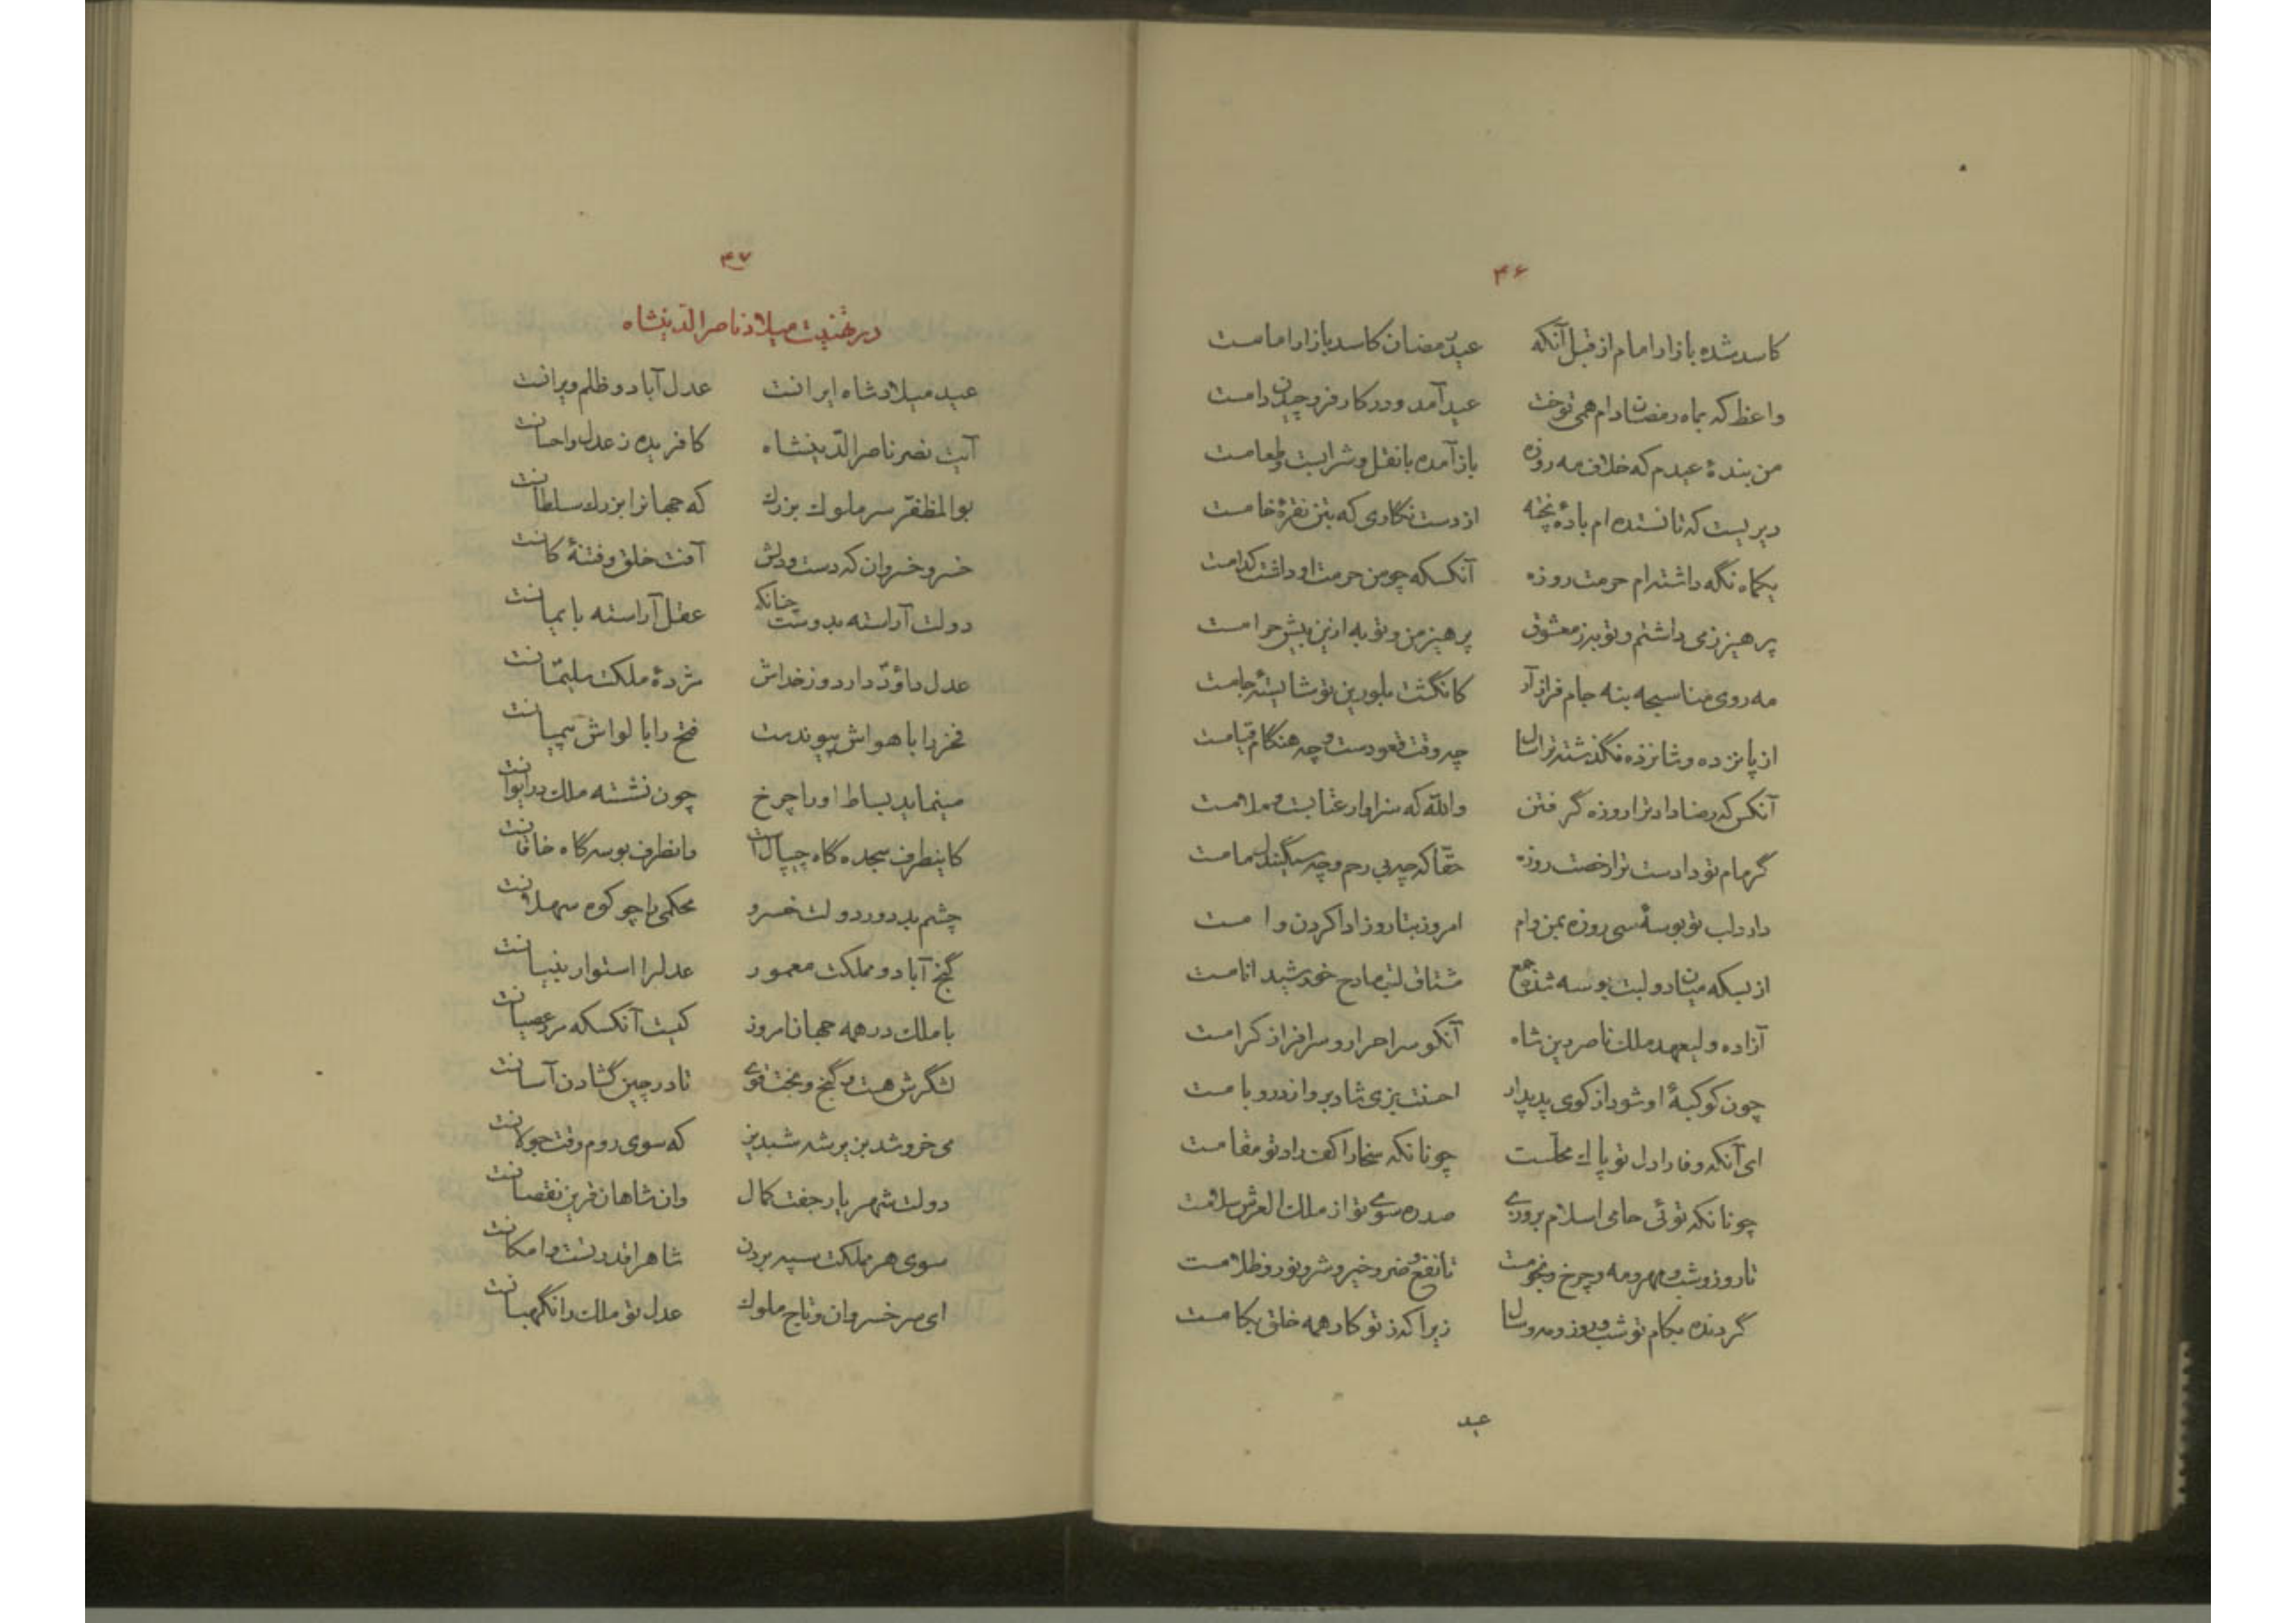 ۴۶
کاسد شده بازار امام از قبل آنکه عید رمضان کاسد بازار امامست
واعظ که بماه رمضان دام همی توخت عید آمد و در کار فرو چیدن دامست
من بندهٔ عیدم که خلاف مه روزه باز آمده با نقل و شرابست و طعامست
دیریست که نانستده ام بادهٔ پخته از دست نگاری که بتن نقرهٔ خامست
یکماه نگه داشته‌ام حرمت روزه آنکسکه چو من حرمت او داشت کدامست
پرهیز زمی داشتم و تو بر ز معشوق پرهیز من و تو به ازین بیش حرامست
مه روی منا سبحه بنه جام فراز آر کانگشت بلورین تو شایستهٔ جامست
از پانزده و شانزده نگذشته ترا سال چه وقت قعودست و چه هنگام قیامست
آنکس که رضا داد ترا روزه گرفتن والله که سزاوار عتابست و ملامست
گر مام تو دادست ترا رخصت روزه حقا که چه بی رحم و چه سنگیندل مامست
دارد لب تو بوسهٔ سی روزه بمن وام امروز بتا روز ادا کردن وامست
از بسکه میان دو لبت بوسه شده جمع مشتاق لب مادح خورشید انامست
آزاده ولیعهد ملک ناصر دین شاه آنکو سر احرار و سرافراز کرامست
چون کوکبهٔ او شود از کوی پدیدار احسنت بزی شاد بر و از در و بامست
ای آنکه وفا را دل تو پاک محلّست چونانکه سخا را کف راد تو مقامست
چونانکه توئی حامی اسلام بروزی صد ره سوی تو از ملک العرش سلامست
تا روز و شب و مهر و مه و چرخ و نجومست تا نفع و ضر و خیر و شر و نور و ظلامست
گردنده بکام تو شب و روز و مه و سال زیرا که ز تو کار همه خلق بکامست
عید
۴۷
در تهنیت میلاد ناصرالدینشاه
عید میلاد شاه ایرانست عدل آباد و ظلم ویرانست
آیت نصر ناصرالدینشاه کافریده ز عدل و احسانست
بوالمظفّر سر ملوک بزرگ که جهانرا بزرگ سلطانست
خسرو خسروان که دست و دلش آفت خلق و فتنهٔ کانست
دولت آراسته بدوست چنانکه عقل آراسته بایمانست
عدل داوُد دارد و ز خداش مژدهٔ ملکت سلیمانست
فخر را با هواش پیوندست فتح را با لواش پیمانست
مینماید بساط او را چرخ چون نشسته ملک در ایوانست
کاینطرف سجده گاه چیپالست وانطرف بوسه گاه خاقانست
چشم بد دور دولت خسرو محکمی را چو کوه سهلانست
گنج آباد و مملکت معمور عدلرا استوار بنیانست
با ملک در همه جهان امروز کیست آنکسکه مرد عصیانست
لشگرش هست و گنج و بخت قوی تا در چین گشادن آسانست
می خروشد بزیر شه شبدیز که سوی روم وقت جولانست
دولت شهریار جفت کمال وان شاهان قرین نقصانست
سوی هر مملکت سپه بردن شاهرا قدرتست و امکانست
ای سر خسروان و تاج ملوک عدل تو ملک را نگهبانست